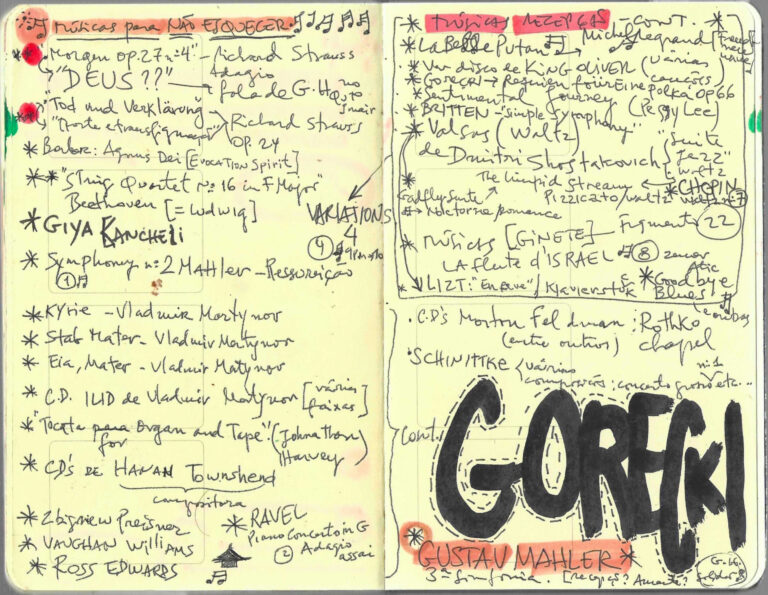 músicas para NÃO ESQUECER
* "Morgen op. 27 nº 4" - Richard Strauss
"DEUS??" Adagio
fala de G.H. no
"Tod und Verklärung"
"Morte e transfiguração" Richard Strauss
OP. 24
* Barber: Agnus Dei [EVOCATION SPIRIT]
** "String Quartet nº 16 in F Major"
Beethoven [= Ludwig]
* GIYA KANCHELI
VARIATIONS
4
* Symphony nº 2 Mahler - Ressureição
1
* Kyrie - Vladimir Martynov
* Stab Mater - Vladimir Martynov
* Eia, Mater - Vladimir Matynov
* C.D. ILID de Vladimir Matynov [várias faixas]
* "Tocata para Organ and Tape" (Johnathan Harvey)
for
* CD's de HANAN Townshend
compositora
* Zbigniew Preisner
* VAUGHAN Williams
* ROSS EDWARDS
* RAVEL
Piano Concerto in G
2 Adagio
assai
* músicas RECEPÇÃO - CONT. *
* La Belle Putan Michel Legrand
* Ver disco de KING OLIVER (várias canções)
* GORECKI → Requiem für eine polka OP 66
* Sentimental Journey (Peggy Lee)
* BRITTEN - "Simple Symphony"
* Valsas (Waltz) "Suite
de Dmitri Shostakovich Jazz"
waltz
The Limpid Stream * CHOPIN
Gadfly Suite Pizzicato/waltz waltz nº 7
Nocturne romance
* músicas [GINETE] Figment 22
LA flute d'ISRAEL 8
* LIZT: "En rêve" / Klavierstuk * Goodbye
Blues
• C.D's Morton Feldman: Rothko
(entre outros) chapel
• SCHINITTKE várias nº 1
composições: concerto grosso etc...
Cont.
GORECKI
* GUSTAV MAHLER *
3ª sinfonia. [recepção? Amante?